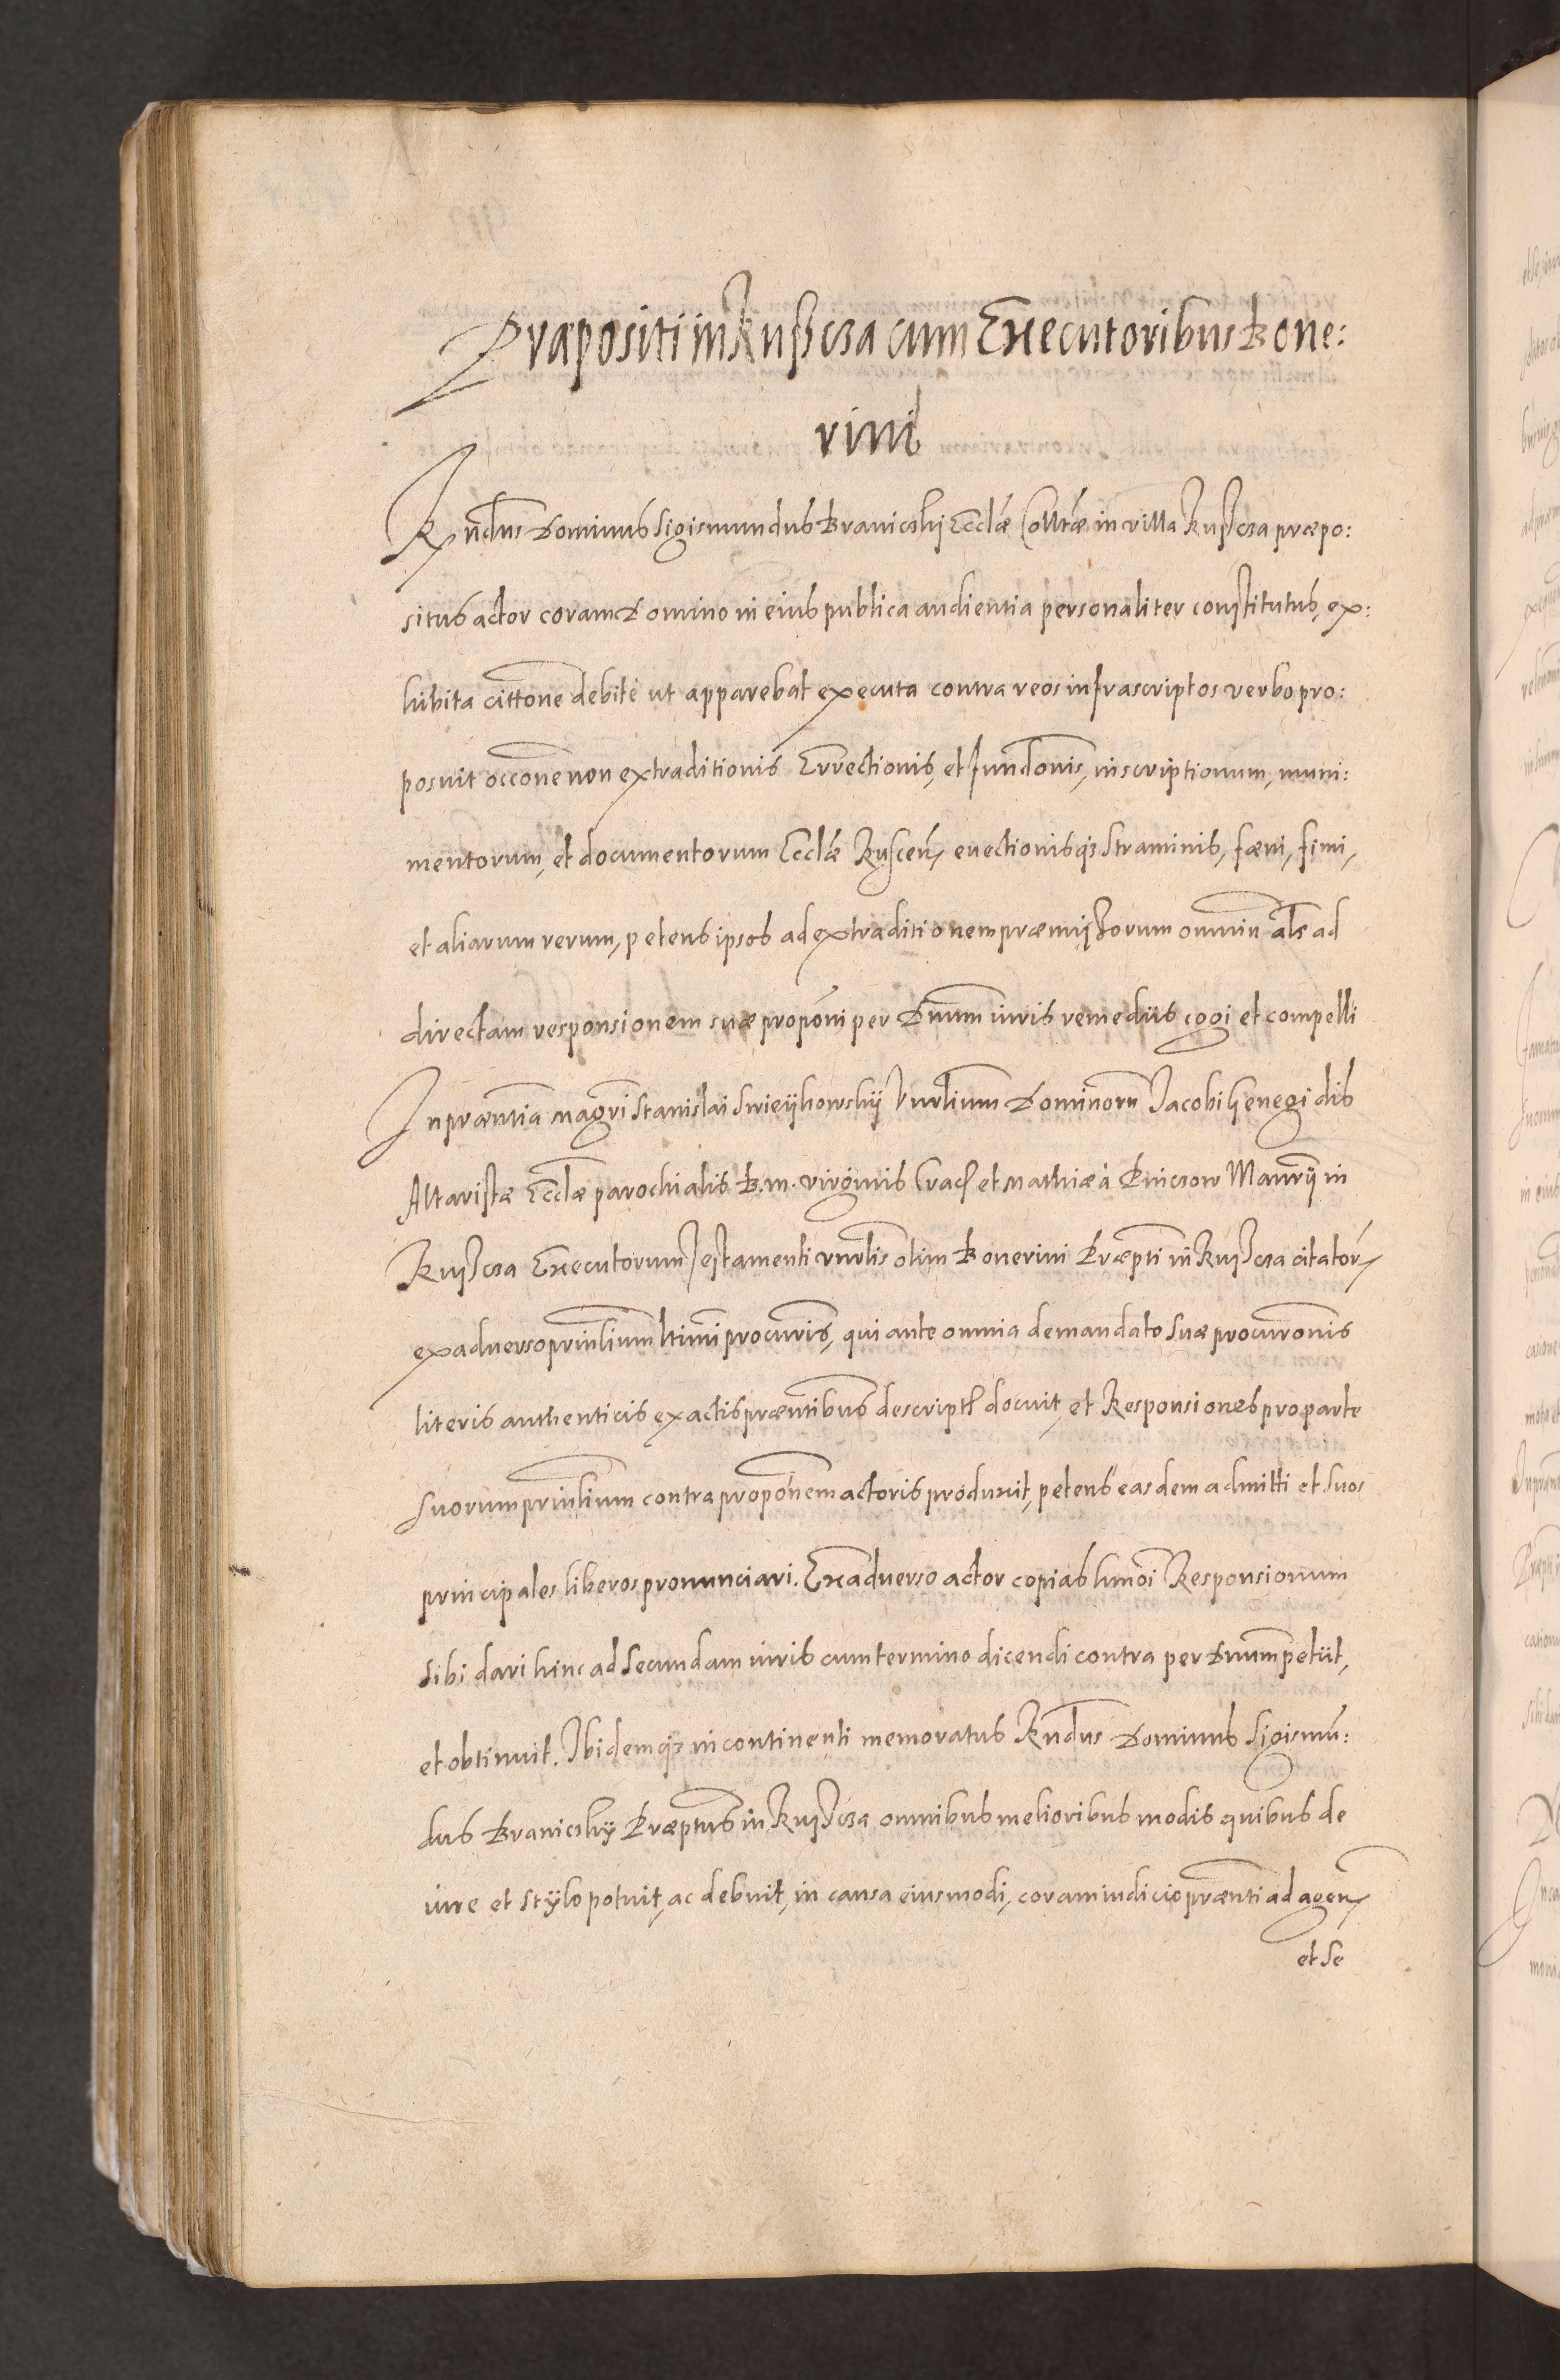 Præpositi in Kuſſcza cum Executoribus Bone:
rini
Rndus Dominus Sigismundus Braniczkij Ecclæ Colltæ in villa Kuſſcza præpo:
situs actor coram Domino in eius publica audientia personaliter constitutus, ex:
hibita cittone debitè ut apparebat executa contra reos infrascriptos verbo pro:
posuit occone non extraditionis Errectionis, et fundonis, inscriptionum, muni:
mentorum, et documentorum Ecclæ Kuscen, euectionisq3 straminis, fæni, fimi,
et aliarum rerum, petens ipsos ad extraditionem præmissorum omniu als ad
directam responsionem suæ proponi per Dnum iuris remediis cogi et compelli
In præntia magri Stanislai Swieijkowskij Vnrlium Dominoru Jacobi Genegi dis
Altaristæ Ecclæ parochialis B. M. virginis Crac et Mathiæ à Pinczow Manrij in
Kuiscza Executorum Testamenti vnrlis olim Bonerini Præpti in Kuiscza citator,
exaduerso prinlium ltimi procuris, qui ante omnia de mandato suæ procuronis
literis authenticis ex actis præntibus descript docuit, et Responsiones pro parte
suorum prinlium contra proponem actoris produxit, petens easdem admitti et suos
principales liberos pronunciari. Exaduerso actor copias hmoi Responsionum
sibi dari hinc ad secundam iuris cum termino dicendi contra per Dnum petiit,
et obtinuit. Ibidemq3 in continenti memoratus Rndus Dominus Sigismu:
dus Braniczkij Præptus in Kuiscza omnibus melioribus modis quibus de
iure et stÿlo potuit, ac debuit, in causa eiusmodi, coram iudicio prænti ad agen,
et se